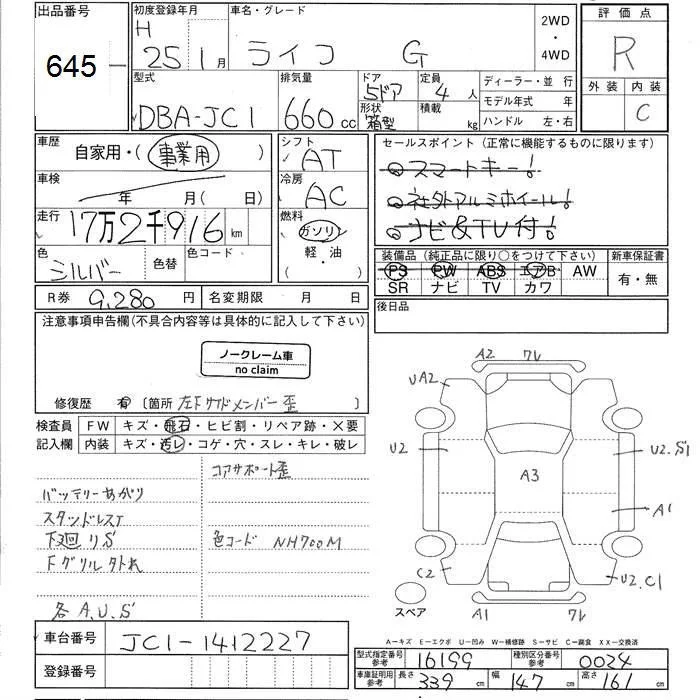 出品番号
645
初度登録年月
H 25 1月
車名・グレード
ライフ G
2WD
・
4WD
評価点
R
外装 内装
C
型式
DBA-JC1
排気量
660 cc
ドア
5ドア
形状
箱型
定員
4人
積載
kg
ディーラー・並行
モデル年式 年
ハンドル 左・右
車歴
自家用・(事業用 )
シフト
AT
車検
年 月(日)
冷房
AC
走行
17万2千916 km
燃料
ガソリン
軽・油
色
シルバー
色替
色コード
R券 9,280 円
名変期限 月 日
セールスポイント (正常に機能するものに限ります)
◎スマートキー!
◎社外アルミホイール!
◎ナビ&TV付!
装備品 (純正品に限り○をつけて下さい)
PS PW ABS エアB AW
SR ナビ TV カワ
新車保証書
有・無
後日品
注意事項申告欄(不具合内容等は具体的に記入して下さい)
ノークレーム車
no claim
修復歴 有 〔箇所 左Fサイドメンバー歪 〕
検査員
記入欄
FW キズ・飛石・ヒビ割・リペア跡・×要
内装 キズ・汚レ・コゲ・穴・スレ・キレ・破レ
コアサポート歪
バッテリーあがり
スタッドレスT
下廻りS
色コード NH700M
Fグリル外れ
各A.U.S
A2 ワレ
UA2
U2
U2.S1
A3
A1
C2
U2.C1
スペア
A1 ワレ
A-キズ E-エクボ U-凹み W-補修跡 S-サビ C-腐食 XX-交換済
車台番号
JC1-1412227
登録番号
型式指定番号
参考
16199
種別区分番号
参考
0024
車庫証明用
参考
長さ 339 cm
幅 147 cm
高さ 161 cm